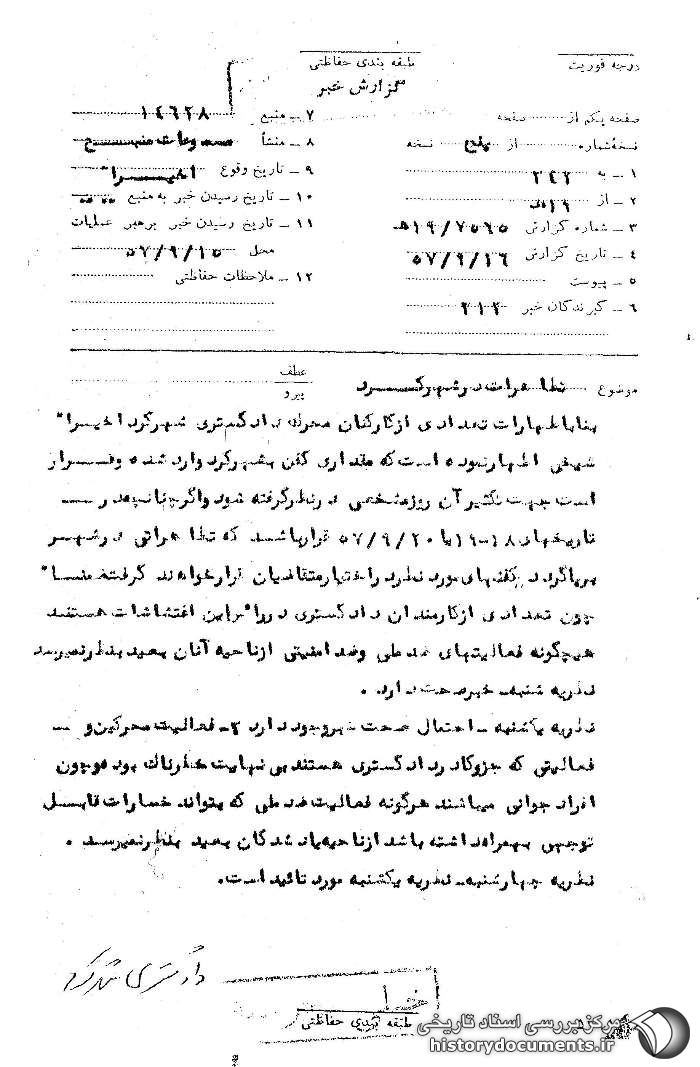 درجه فوریت
طبقه بندی حفاظتی
گزارش خبر
صفحه یکم از صفحه
نسخه شماره از پنج نسخه
۱ ــ به ۳۴۲
۲ ــ از ۱۹ ه‍
۳ ــ شماره گزارش ۱۹/۷۵۶۵ ه‍
۴ ــ تاریخ گزارش ۵۷/۹/۱۶
۵ ــ پیوست
۶ ــ گیرندگان خبر ۳۱۲
۷ ــ منبع ۱۴۶۲۸
۸ ــ منشأ مسموعات منبع
۹ ــ تاریخ وقوع اخیرا"
۱۰ ــ تاریخ رسیدن خبر به منبع
۱۱ ــ تاریخ رسیدن خبر برهبر عملیات
محل ۵۷/۹/۱۵
۱۲ ــ ملاحظات حفاظتی
موضوع تظاهرات در شهرکرد
عطف
پیرو
بنا باظهارات تعدادی از کارکنان محرک دادگستری شهرکرد اخیرا"
شخصی اظهار نموده است که مقداری کفن بشهرکرد وارد شده و قرار
است جهت تکثیر آن روز مشخصی در نظر گرفته شود و اگر چنانچه در
تاریخهای ۱۸-۱۹ یا ۵۷/۹/۲۰ قرار باشد که تظاهراتی در شهر
برپا گردد کفنهای مورد نظر در اختیار متقاضیان قرار خواهند گرفت ضمنا"
چون تعدادی از کارمندان دادگستری در رأس این اغتشاشات هستند
هیچگونه فعالیتهای ضد ملی و ضد امنیتی از ناحیه آنان بعید بنظر نمیرسد
نظریه شنبه ـ خبر صحت دارد .
نظریه یکشنبه ـ احتمال صحت خبر وجود دارد ۲ـ فعالیت محرکین و
فعالیتی که جزو کادر دادگستری هستند بی نهایت خطرناک بوده و چون
افراد جوانی میباشند هرگونه فعالیت ضد ملی که بتواند خسارات قابل
توجهی بهمراه داشته باشد از ناحیه یاد شدگان بعید بنظر نمیرسد .
نظریه چهارشنبه ـ نظریه یکشنبه مورد تائید است .
دادگستری شهرکرد
طبقه بندی حفاظتی
مرکز بررسی اسناد تاریخی
historydocuments.ir